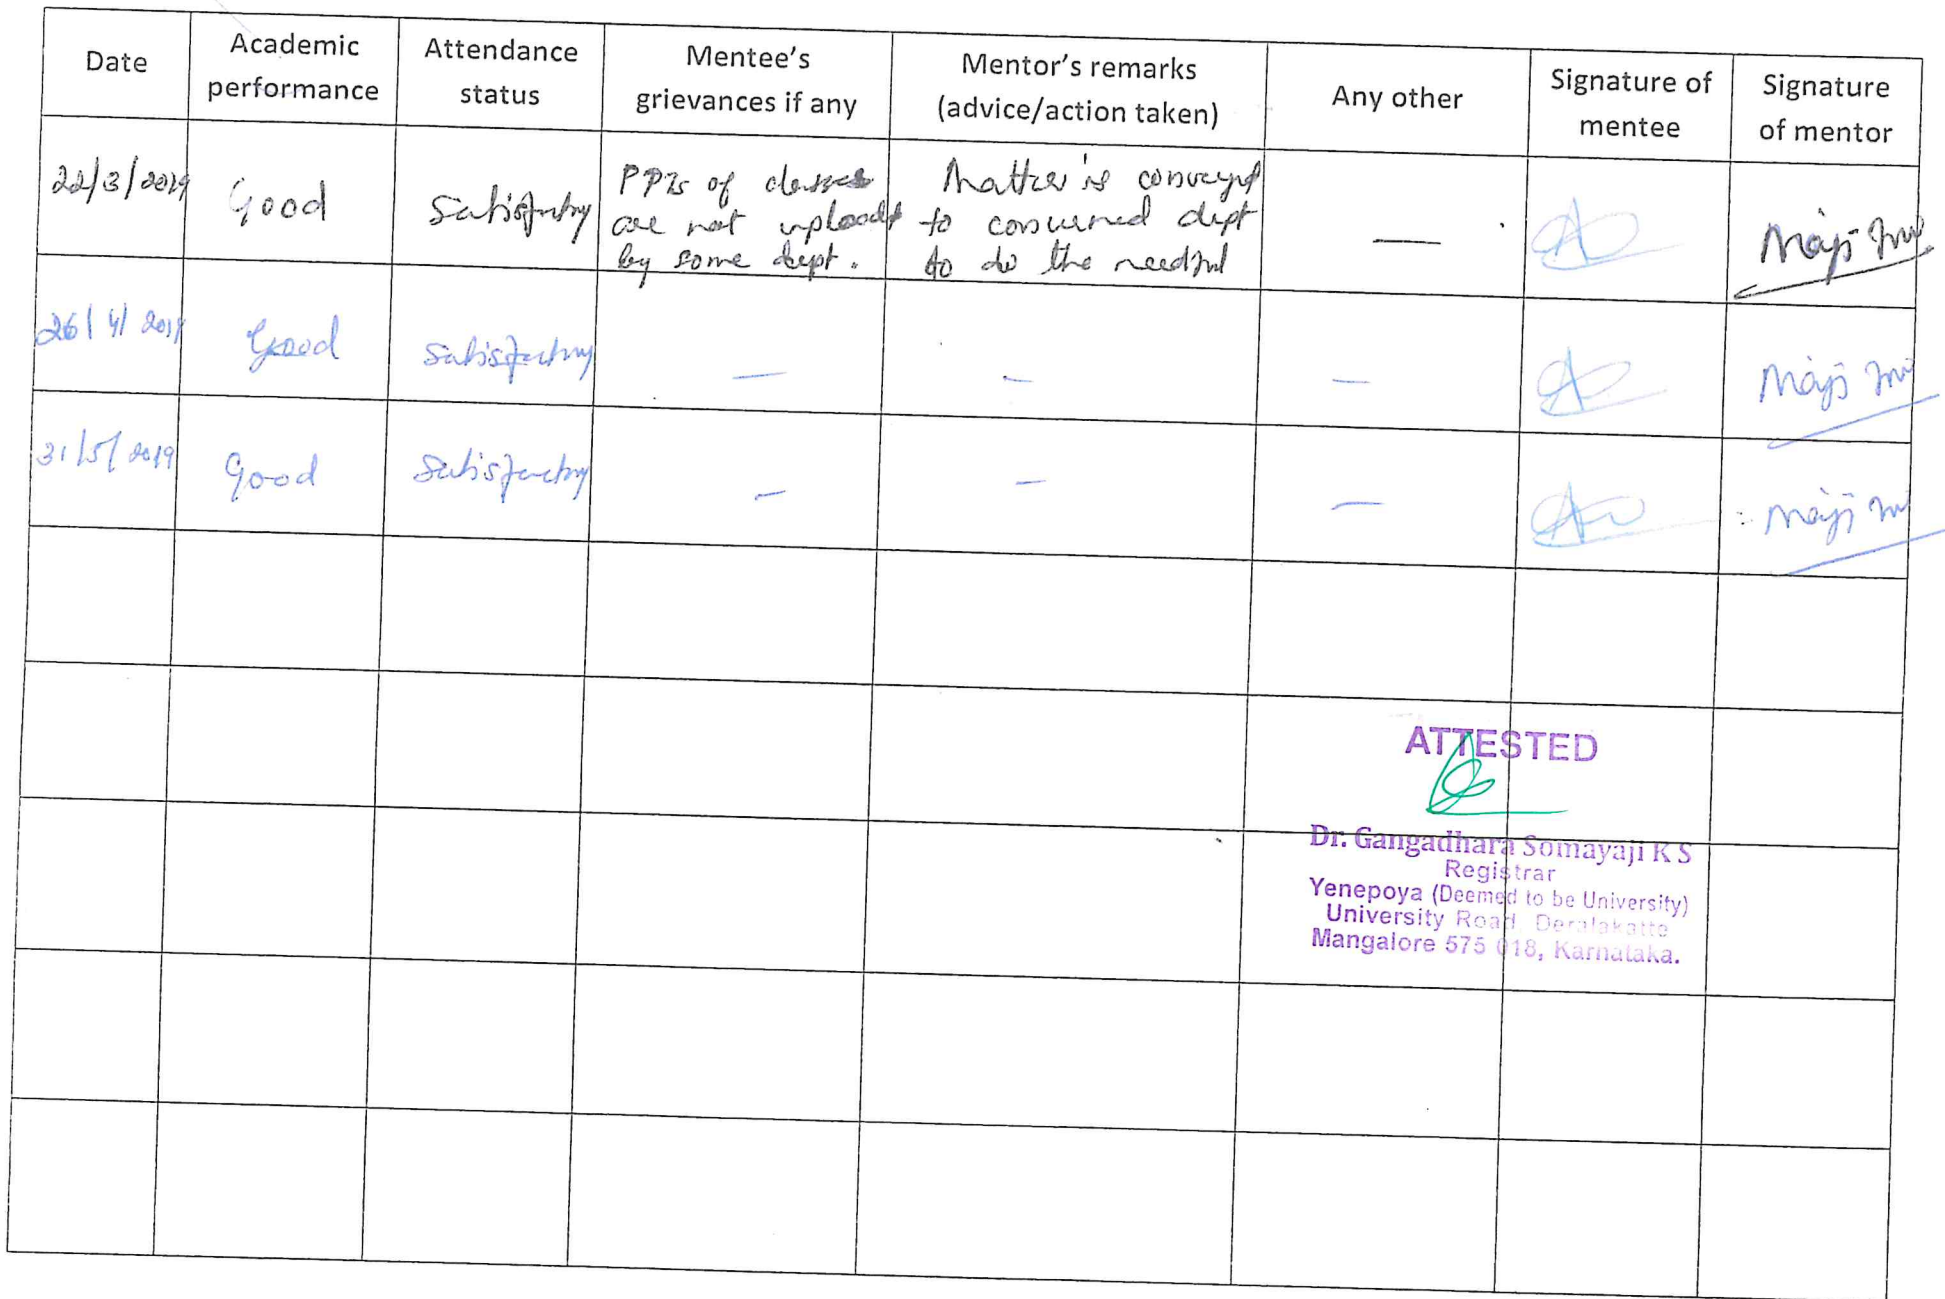 Date Academic performance Attendance status Mentee's grievances if any Mentor's remarks (advice/action taken) Any other Signature of mentee Signature of mentor
22/3/2019 Good Satisfactory PPTs of classes are not uploaded by some dept. Matter is conveyed to concerned dept to do the needful —
26/4/2019 Good Satisfactory — — —
31/5/2019 Good Satisfactory — — —
ATTESTED
Dr. Gangadhara Somayaji K S
Registrar
Yenepoya (Deemed to be University)
University Road Deralakatte
Mangalore 575 018, Karnataka.